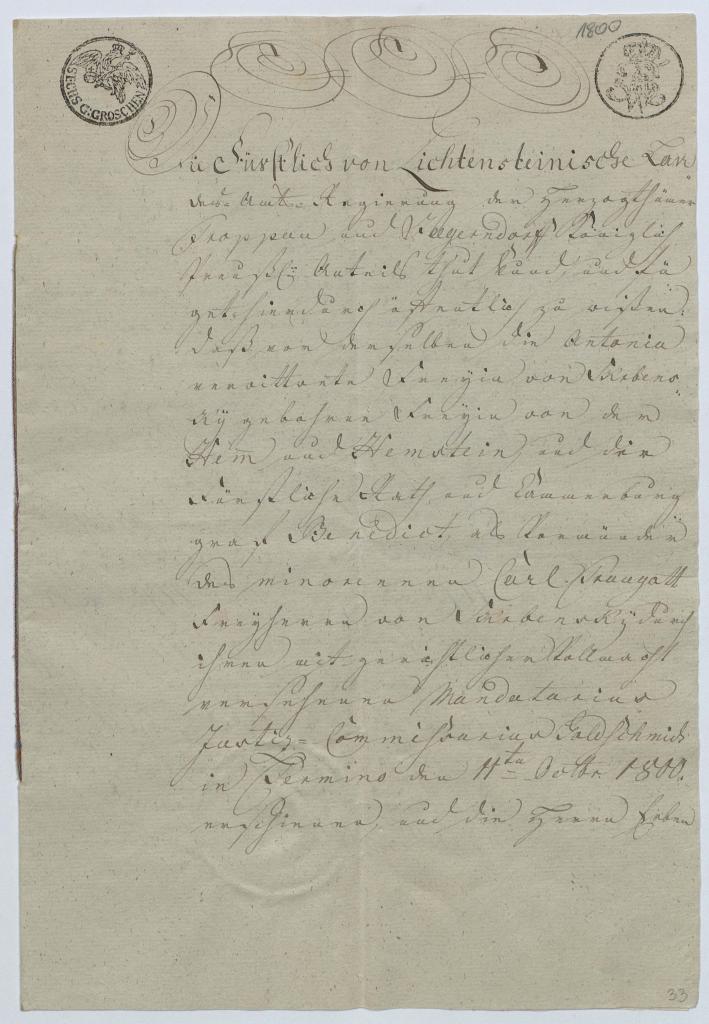 1800
SECHS G. GROSCHEN
Die Fürstlich von Lichtensteinische Lan
des-Amts-Regierung der Herzogthümer
Troppau und Jägerndorff Königlich
Preuß. Anteils thut kund, und fü
get hierdurch öffentlich zu wißen:
daß von derselben die Antonia
verwittwete Freyin von Skrbens
ky gebohrne Freyin von der
Hem und Hemstein, und der
Fürstliche Rath und Cammerburg
graf Benedict, als Vormünder
des minorennen Carl Traugott
Freyherrn von Skrbensky durch
ihren mit gerichtlicher Vollmacht
versehenen Mandatarius
Justiz-Commissarius Goldschmidt
in Termino den 11ten Octbr 1800.
erschienen, und die Herrn Erben
33